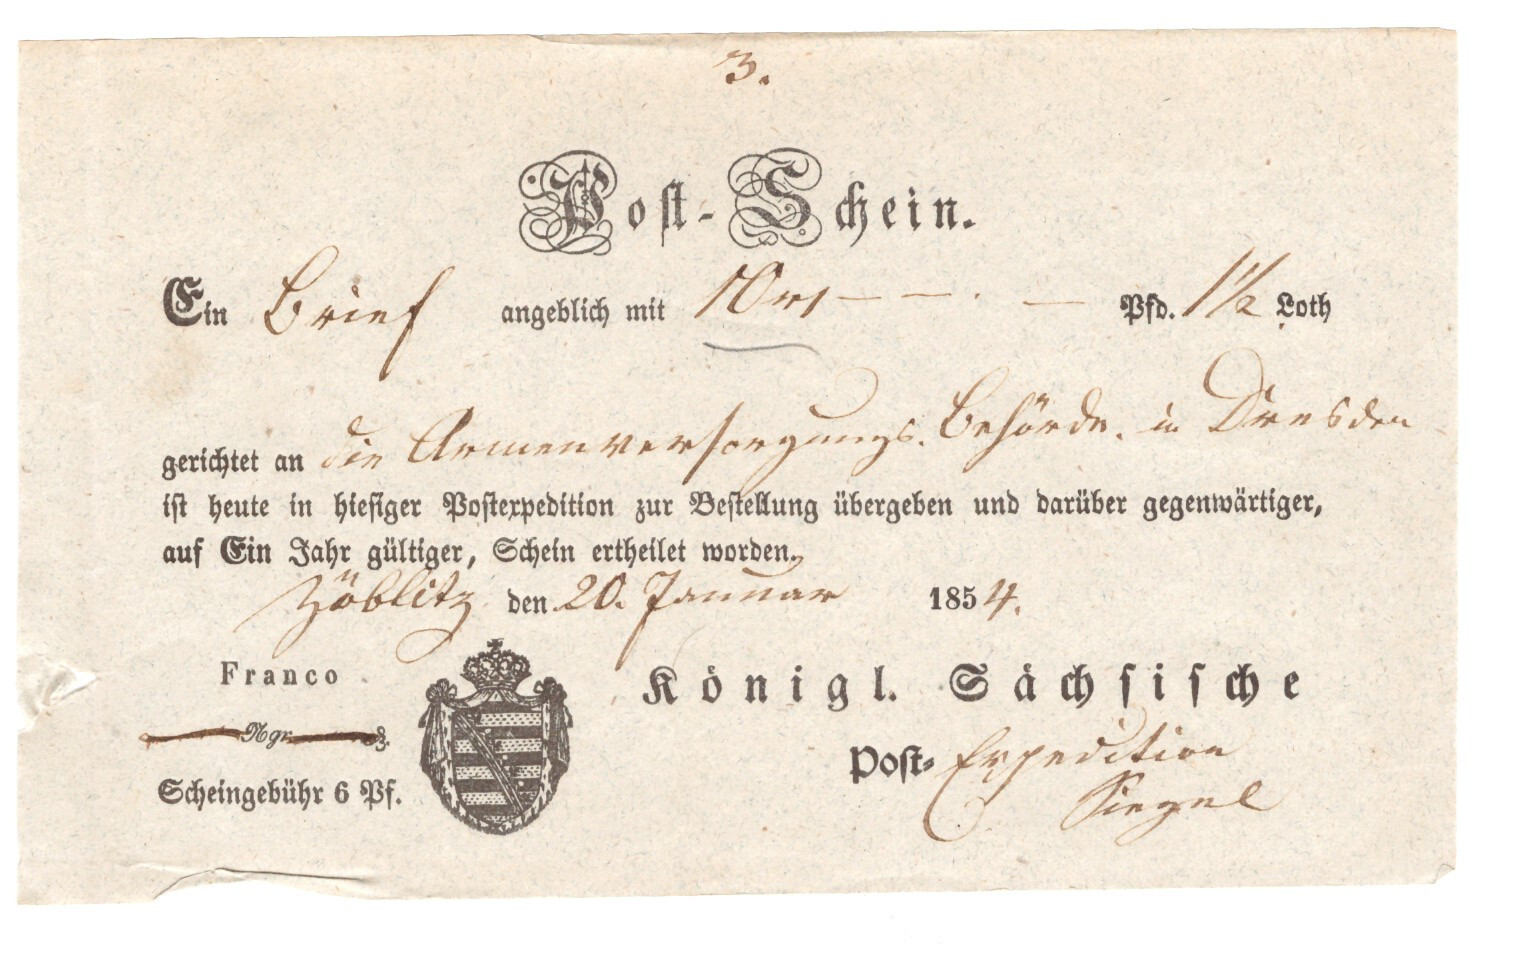 3.
Post-Schein.
Ein Brief angeblich mit 10 Pfd. 1½ Loth
gerichtet an die Armenversorgungs. Behörde. in Dresden
ist heute in hiesiger Postexpedition zur Bestellung übergeben und darüber gegenwärtiger,
auf Ein Jahr gültiger, Schein ertheilet worden.
Zöblitz den 20. Januar 1854.
Franco
Königl. Sächsische
Ngr.
Post- Expedition
Scheingebühr 6 Pf.
Siegel